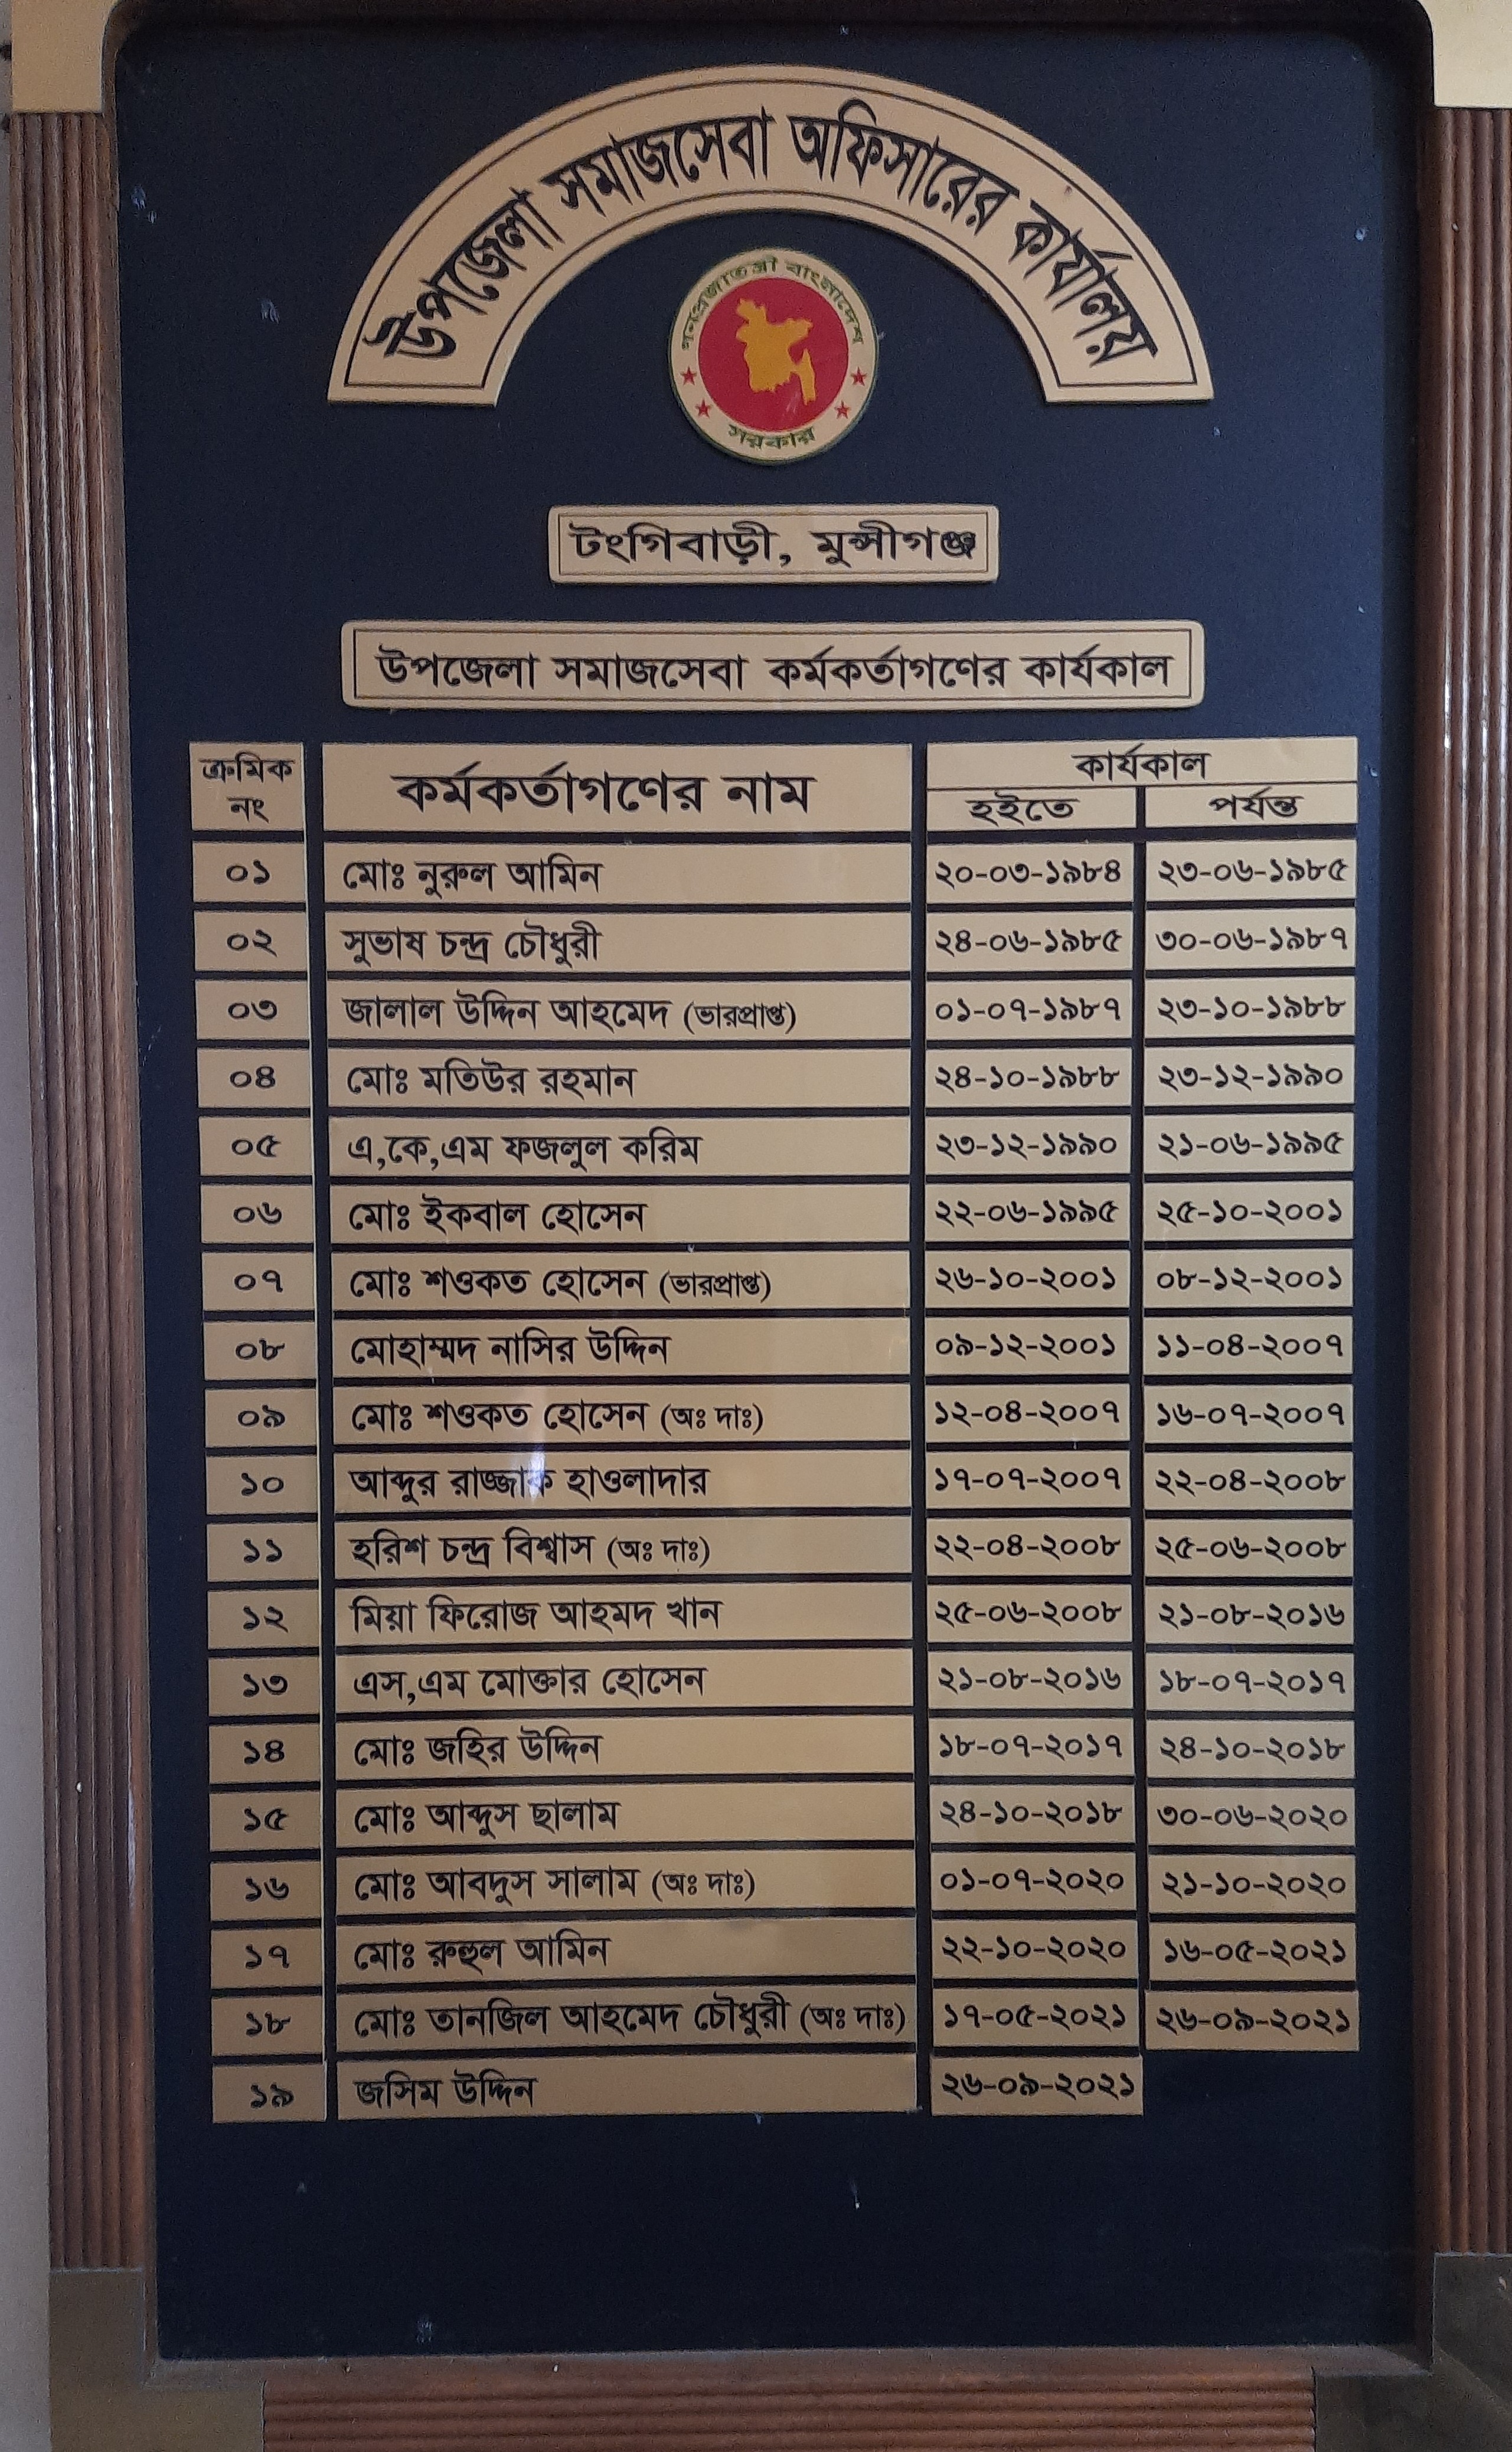 উপজেলা সমাজসেবা অফিসারের কার্যালয়
গনপ্রজাতন্ত্রী বাংলাদেশ
সরকার
টংগিবাড়ী, মুন্সীগঞ্জ
উপজেলা সমাজসেবা কর্মকর্তাগণের কার্যকাল
ক্রমিক নং কর্মকর্তাগণের নাম কার্যকাল
হইতে পর্যন্ত
০১ মোঃ নুরুল আমিন ২০-০৩-১৯৮৪ ২৩-০৬-১৯৮৫
০২ সুভাষ চন্দ্র চৌধুরী ২৪-০৬-১৯৮৫ ৩০-০৬-১৯৮৭
০৩ জালাল উদ্দিন আহমেদ (ভারপ্রাপ্ত) ০১-০৭-১৯৮৭ ২৩-১০-১৯৮৮
০৪ মোঃ মতিউর রহমান ২৪-১০-১৯৮৮ ২৩-১২-১৯৯০
০৫ এ,কে,এম ফজলুল করিম ২৩-১২-১৯৯০ ২১-০৬-১৯৯৫
০৬ মোঃ ইকবাল হোসেন ২২-০৬-১৯৯৫ ২৫-১০-২০০১
০৭ মোঃ শওকত হোসেন (ভারপ্রাপ্ত) ২৬-১০-২০০১ ০৮-১২-২০০১
০৮ মোহাম্মদ নাসির উদ্দিন ০৯-১২-২০০১ ১১-০৪-২০০৭
০৯ মোঃ শওকত হোসেন (অঃ দাঃ) ১২-০৪-২০০৭ ১৬-০৭-২০০৭
১০ আব্দুর রাজ্জাক হাওলাদার ১৭-০৭-২০০৭ ২২-০৪-২০০৮
১১ হরিশ চন্দ্র বিশ্বাস (অঃ দাঃ) ২২-০৪-২০০৮ ২৫-০৬-২০০৮
১২ মিয়া ফিরোজ আহমদ খান ২৫-০৬-২০০৮ ২১-০৮-২০১৬
১৩ এস,এম মোক্তার হোসেন ২১-০৮-২০১৬ ১৮-০৭-২০১৭
১৪ মোঃ জহির উদ্দিন ১৮-০৭-২০১৭ ২৪-১০-২০১৮
১৫ মোঃ আব্দুস ছালাম ২৪-১০-২০১৮ ৩০-০৬-২০২০
১৬ মোঃ আবদুস সালাম (অঃ দাঃ) ০১-০৭-২০২০ ২১-১০-২০২০
১৭ মোঃ রুহুল আমিন ২২-১০-২০২০ ১৬-০৫-২০২১
১৮ মোঃ তানজিল আহমেদ চৌধুরী (অঃ দাঃ) ১৭-০৫-২০২১ ২৬-০৯-২০২১
১৯ জসিম উদ্দিন ২৬-০৯-২০২১